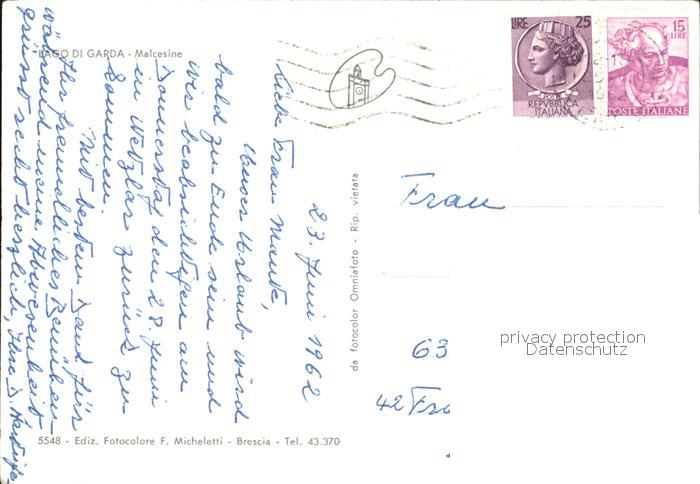 LAGO DI GARDA - Malcesine
23. Juni 1962
Liebe Frau
Unser Urlaub wird
bald zu Ende sein und
wir beabsichtigen am
Donnerstag den 28. Juni
in Wetzlar zurück zu
kommen.
Mit bestem Dank für
Ihr freundliches Bemühen
während meiner Abwesenheit
grüsst recht herzlich, Ihr
5548 - Ediz. Fotocolore F. Micheletti - Brescia - Tel. 43.370
da fotocolor Omniafoto - Rip. vietata
LIRE 25
REPVBBLICA
ITALIANA
15
LIRE
POSTE ITALIANE
Frau
63
42 Fra
privacy protection
Datenschutz